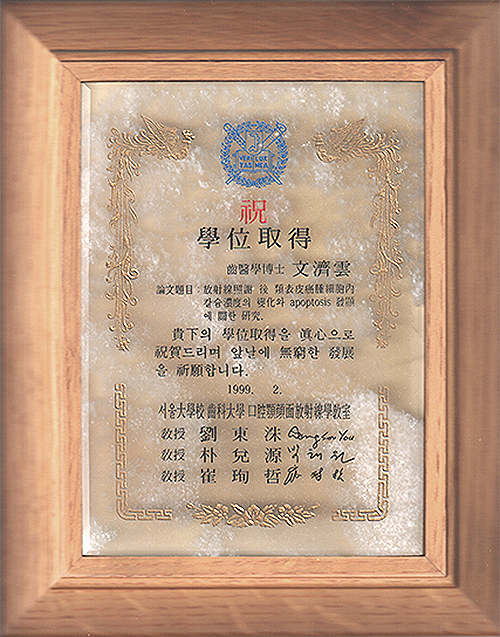 VERI LUX
TAS MEA
祝
學位取得
齒醫學博士 文濟雲
論文題目 : 放射線照謝 後 類表皮癌腫細胞內
칼슘濃度의 變化와 apoptosis 發顯
에 關한 硏究.
貴下의 學位取得을 眞心으로
祝賀드리며 앞날에 無窮한 發展
을 祈願합니다.
1999. 2.
서울大學校 齒科大學 口腔顎顔面放射線學敎室
敎授 劉東洙 Dong Soo You
敎授 朴兌源
敎授 崔珣哲